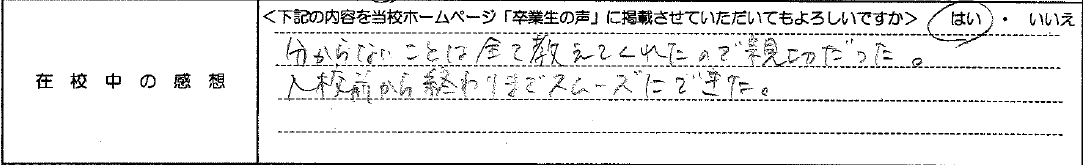 <下記の内容を当校ホームページ「卒業生の声」に掲載させていただいてもよろしいですか> はい ・ いいえ
在校中の感想
分からないことは全て教えてくれたので親切だった。
入校前から終わりまでスムーズにできた。